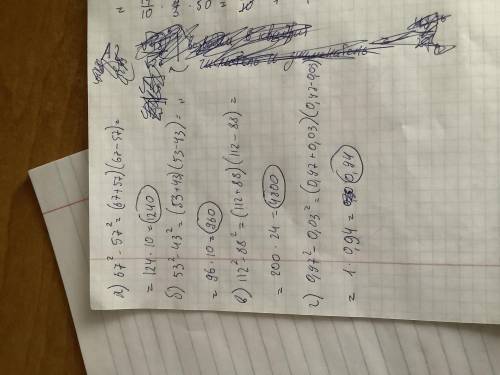 = 17/10 · · 50 =
а) 67² - 57² = (67+57)(67-57)=
= 124 · 10 = 1240
б) 53² - 43² = (53+43)(53-43)=
= 96 · 10 = 960
в) 112² - 88² = (112+88)(112-88)=
= 200 · 24 = 4800
г) 0,97² - 0,03² = (0,97+0,03)(0,97-0,03)
= 1 · 0,94 = 0,94